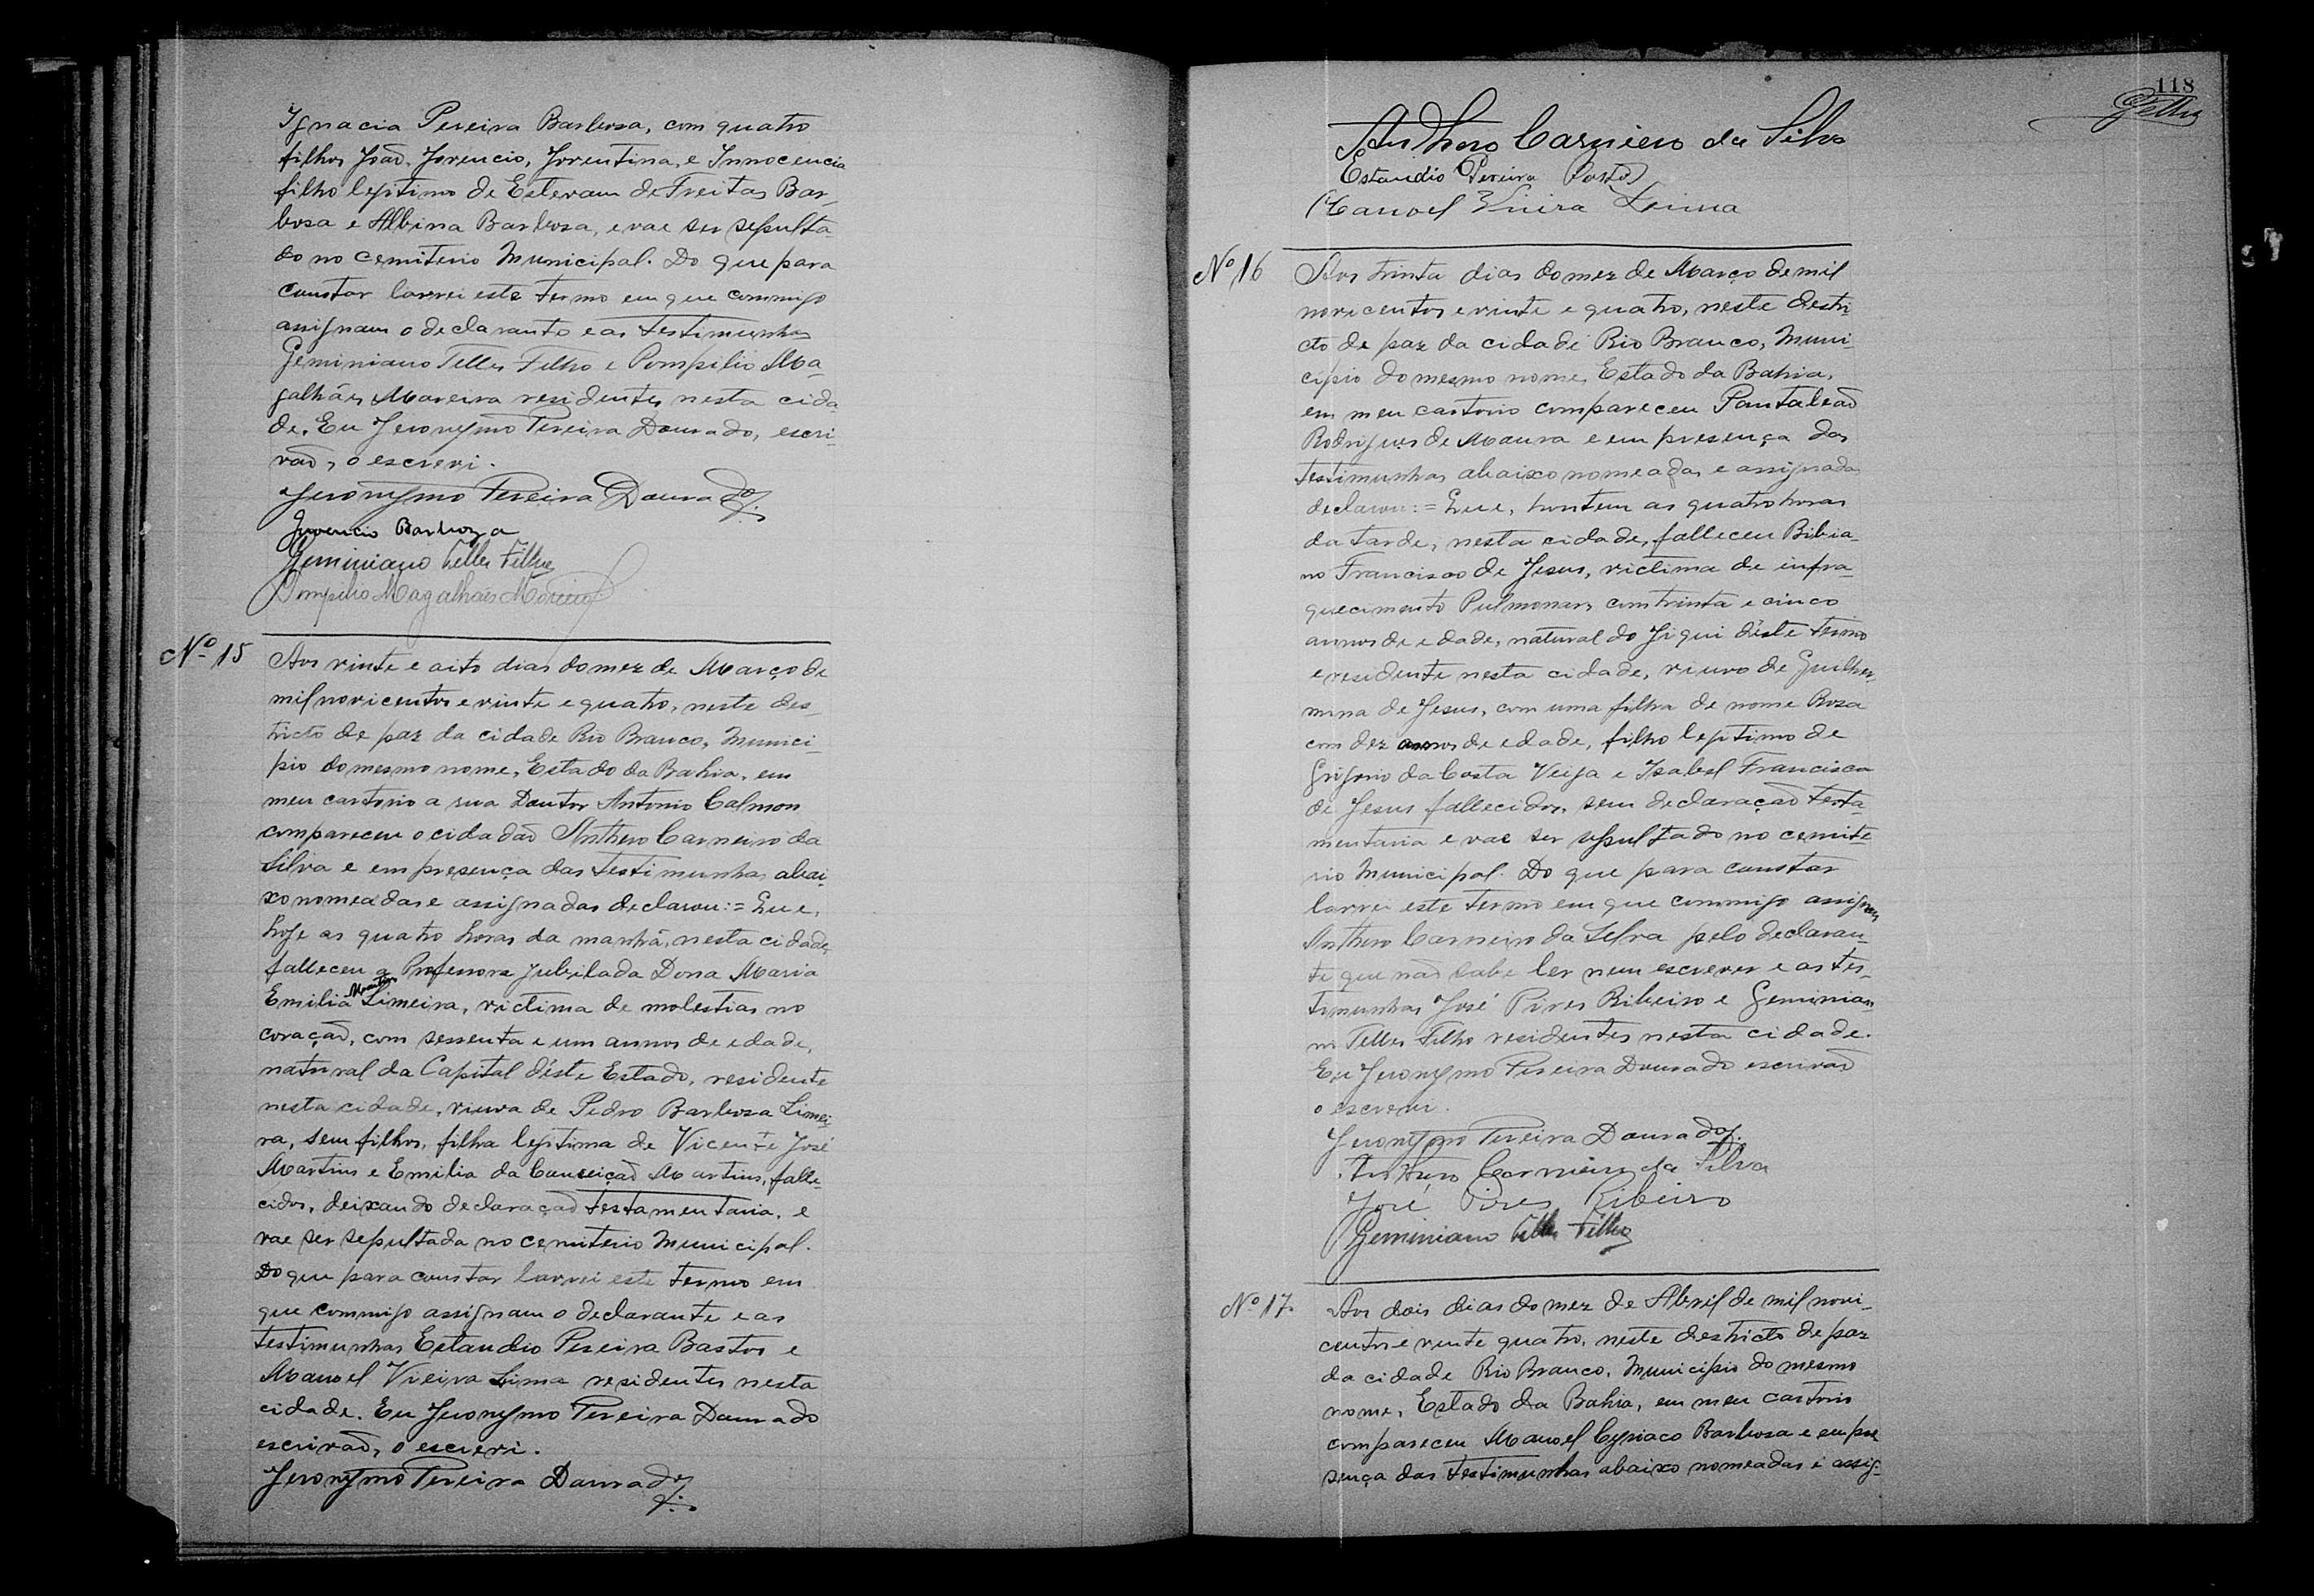 Ignacia Pereira Barbosa, com quatro
filhos João, Jovencio, Joventina, e Innocencia
filho legitimo de Estevam de Freitas Bar-
bosa e Albina Barbosa, e vae ser sepulta-
do no cemiterio Municipal. Do que para
constar lavrei este termo em que commigo
assignam o declarante e as testimunhas
Geminiano Telles Filho e Pompilio Ma-
galhães Moreira residentes nesta cida
de. Eu Jeronymo Pereira Dourado, escri-
vaõ, o escrevi.
Jeronymo Pereira Dourado
Juvencio Barboza
Geminiano Telles Filho
Pompilio Magalhães Moreira
Nº 15
Aos vinte e oito dias do mez de Março de
mil novicentos e vinte e quatro, neste des-
tricto de paz da cidade Rio Branco, Munici-
pio do mesmo nome, Estado da Bahia, em
meu cartorio a rua Doutor Antonio Calmon
compareceu o cidadaõ Anthero Carneiro da
Silva e em presença das testimunhas abai-
xo nomeadas e assignadas declarou:= Que,
hoje as quatro horas da manhã, nesta cidade,
falleceu a Professora jubilada Dona Maria
Emilia Martins Limeira, victima de molestias no
coraçaõ, com sessenta e um annos de edade,
natural da Capital d'éste Estado, residente
nesta cidade, viuva de Pedro Barbosa Limei-
ra, sem filhos, filha legitima de Vicente José
Martins e Emilia da Conceiçaõ Martins, falle-
cidos, deixando declaraçaõ testamentaria, e
vae ser sepultada no cemiterio Municipal.
Do que para constar lavrei este termo em
que commigo assignam o declarante e as
testimunhas Estandio Pereira Bastos e
Manoel Vieira Lima residentes nesta
cidade. Eu Jeronymo Pereira Dourado
escrivaõ, o escrevi.
Jeronymo Pereira Dourado
118
Telles
Anthero Carneiro da Silva
Estandio Pereira Bastos
Manoel Vieira Lima
Nº 16
Aos trinta dias do mez de Março de mil
novicentos e vinte e quatro, neste destri
cto de paz da cidade Rio Branco, Muni-
cipio do mesmo nome, Estado da Bahia,
em meu cartorio compareceu Pantaleaõ
Rodrigues de Moura e em presença das
testimunhas abaixo nomeadas e assignadas
declarou:= Que, hontem as quatro horas
da tarde, nesta cidade, falleceu Bibia-
no Francisco de Jesus, victima de infra-
quecimento Pulmonar, com trinta e cinco
annos de edade, natural do Jiqui d'éste termo
e residente nesta cidade, viuvo de Guilher-
mina de Jesus, com uma filha de nome Rosa
com dez annos de edade, filho legitimo de
Grigorio da Costa Veiga e Isabel Francisca
de Jesus fallecidos, sem declaraçaõ testa-
mentaria e vae ser sepultado no cemite
rio Municipal. Do que para constar
lavrei este termo em que commigo assignam
Anthero Carneiro da Silva pelo declaran-
te que naõ sabe ler nem escrever e as tes-
timunhas José Pires Ribeiro e Geminia-
no Telles Filho residentes nesta cidade.
Eu Jeronymo Pereira Dourado escrivaõ
o escrevi.
Jeronymo Pereira Dourado
Anthero Carneiro da Silva
José Pires Ribeiro
Geminiano Telles Filho
Nº 17.
Aos dois dias do mez de Abril de mil novi-
centos e vinte quatro, neste destricto de paz
da cidade Rio Branco, Municipio do mesmo
nome, Estado da Bahia, em meu cartorio
compareceu Manoel Cyriaco Barbosa e em pre
sença das testimunhas abaixo nomeadas e assig-